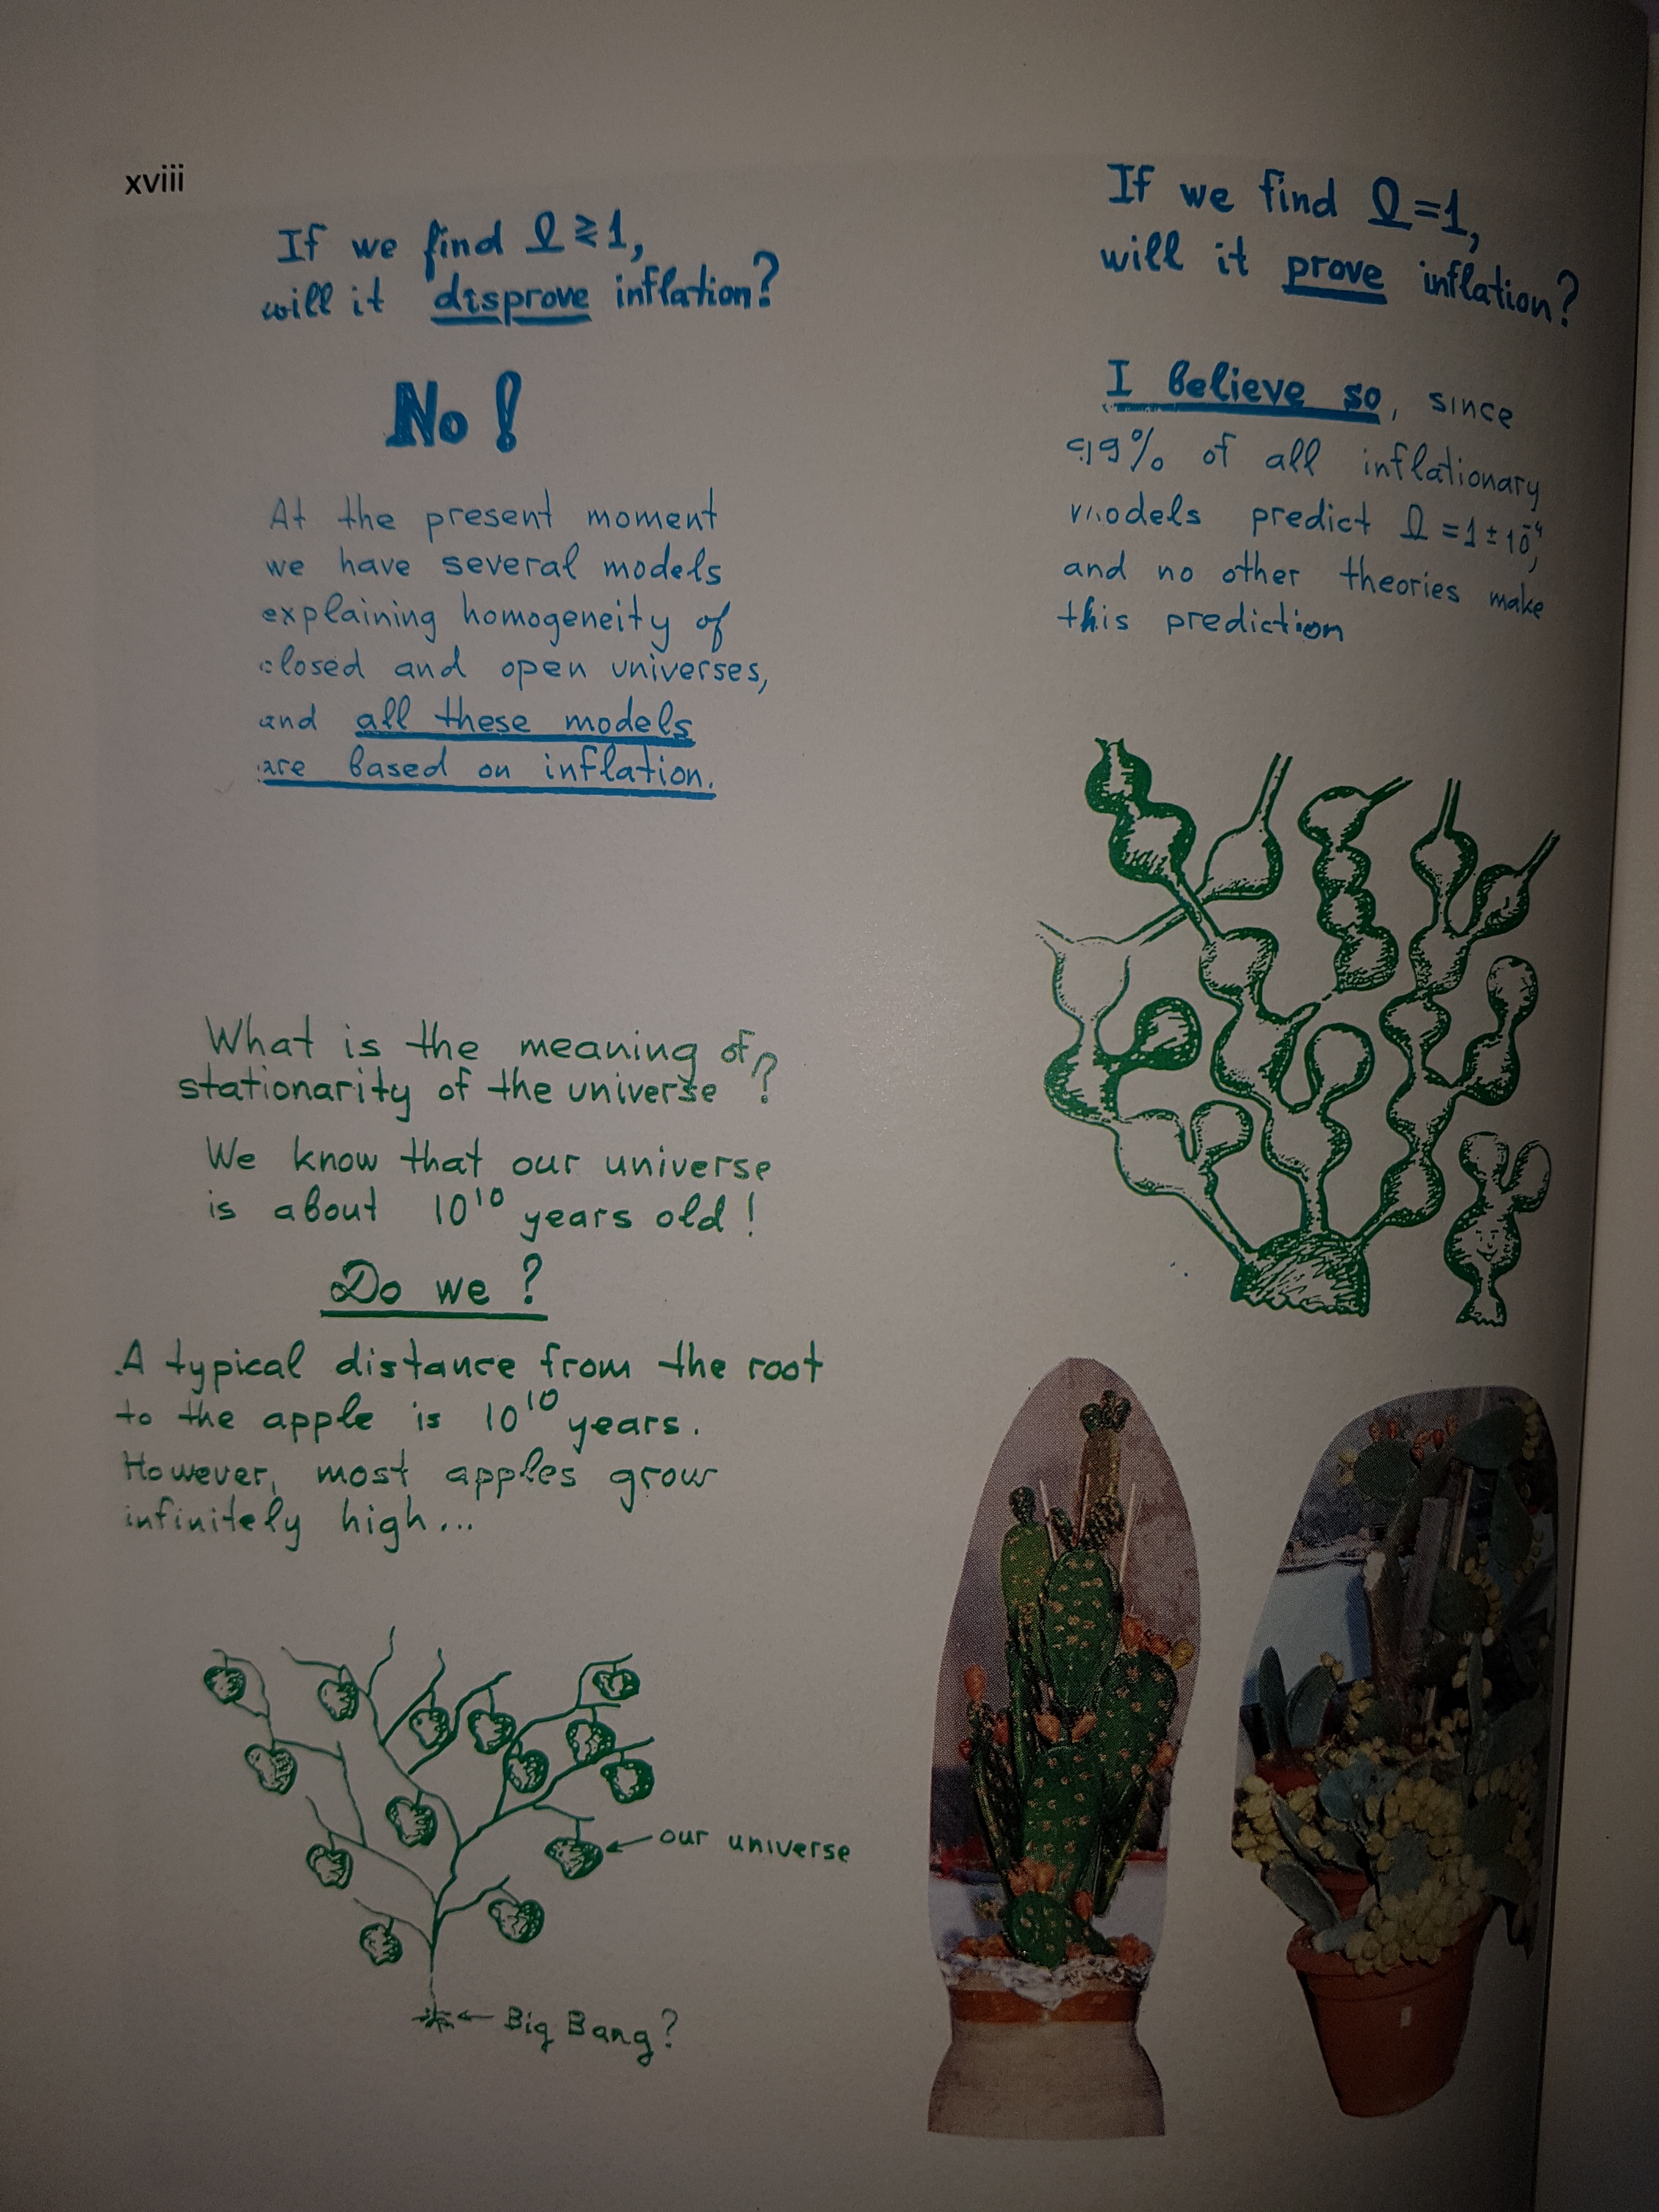 xviii
If we find Ω≷1,
will it disprove inflation?
No!
At the present moment
we have several models
explaining homogeneity of
closed and open universes,
and all these models
are based on inflation.
If we find Ω=1,
will it prove inflation?
I believe so, since
99% of all inflationary
models predict Ω=1±10⁻⁴,
and no other theories make
this prediction
What is the meaning of
stationarity of the universe?
We know that our universe
is about 10¹⁰ years old!
Do we?
A typical distance from the root
to the apple is 10¹⁰ years.
However, most apples grow
infinitely high...
our universe
Big Bang?